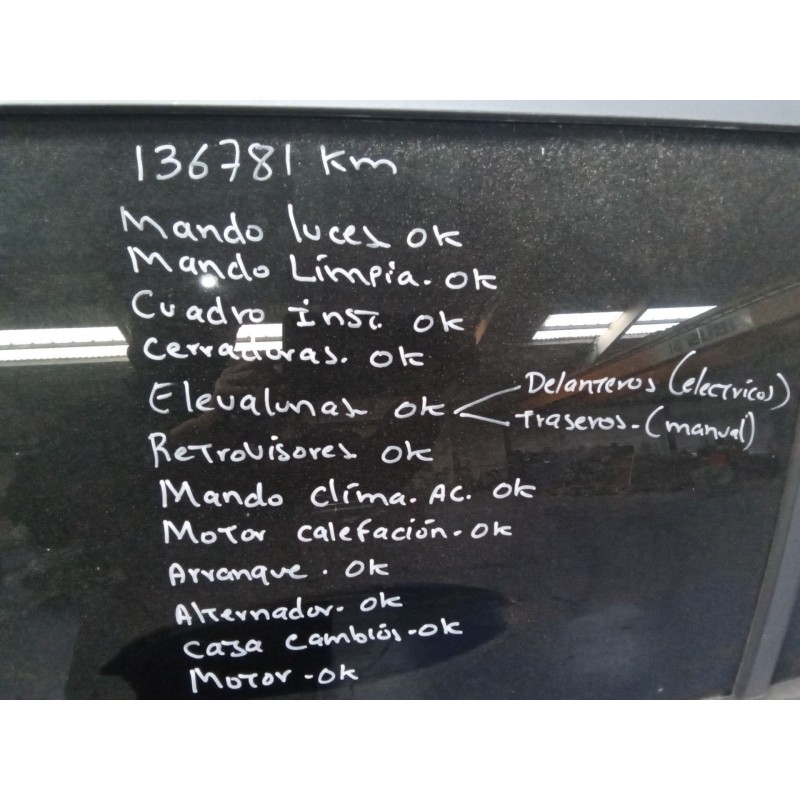 136781 km
Mando luces ok
Mando Limpia. ok
Cuadro inst. ok
Cerraduras. ok
Elevalunas ok
Delanteros (electricos)
Traseros - (manual)
Retrovisores ok
Mando clima. AC. ok
Motor calefación - ok
Arranque. ok
Alternador - ok
Caja cambios - ok
Motor - ok